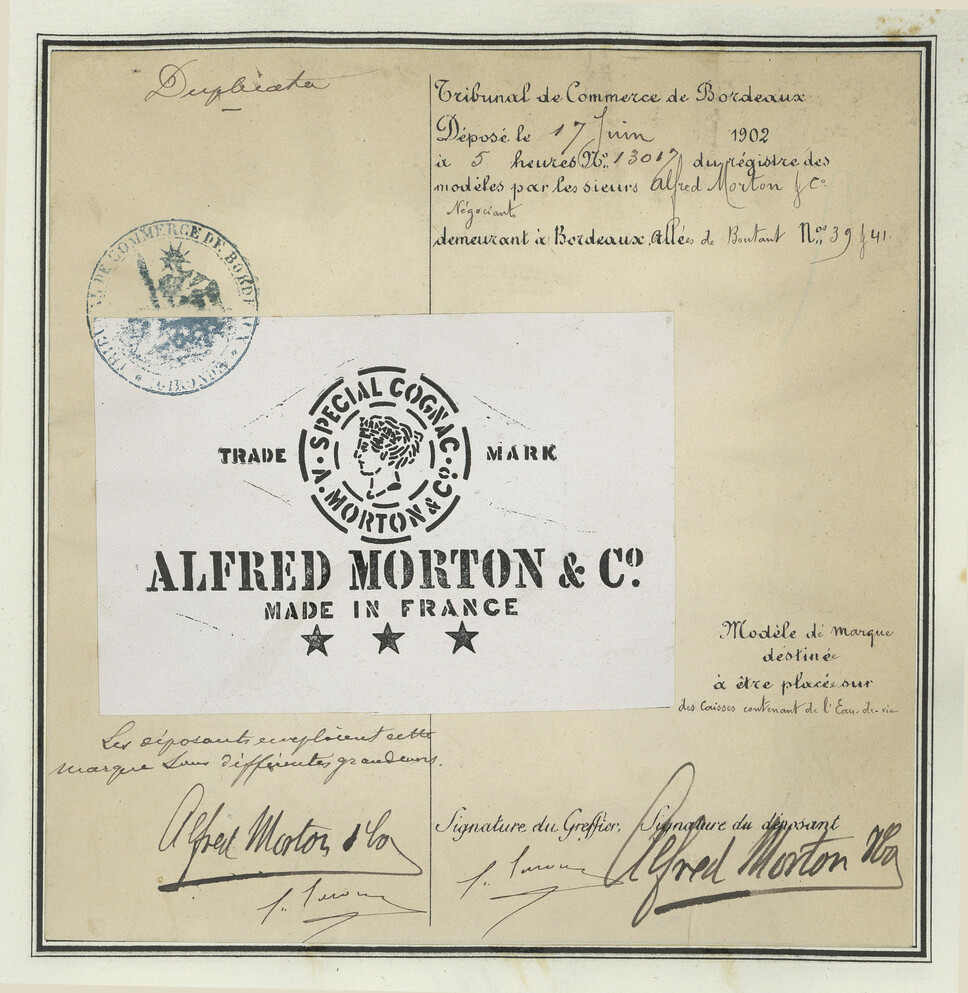 Duplicata
Tribunal de Commerce de Bordeaux
Déposé le 17 Juin 1902
à 5 heures No. 13017 du régistre des
modèles par les sieurs Alfred Morton & Co
Négociants
demeurant à Bordeaux Allées de Boutaut Nos 39 & 41.
TRIBUNAL DE COMMERCE DE BORDEAUX
* GIRONDE *
SPECIAL COGNAC
TRADE MARK
A. MORTON & Co.
ALFRED MORTON & Co.
MADE IN FRANCE
Modèle de marque
destinée
à être placée sur
des Caisses contenant de l'Eau-de-vie
Les déposants emploient cette
marque dans différentes grandeurs.
Signature du Greffier, Signature du déposant
Alfred Morton & Co
Alfred Morton & Co